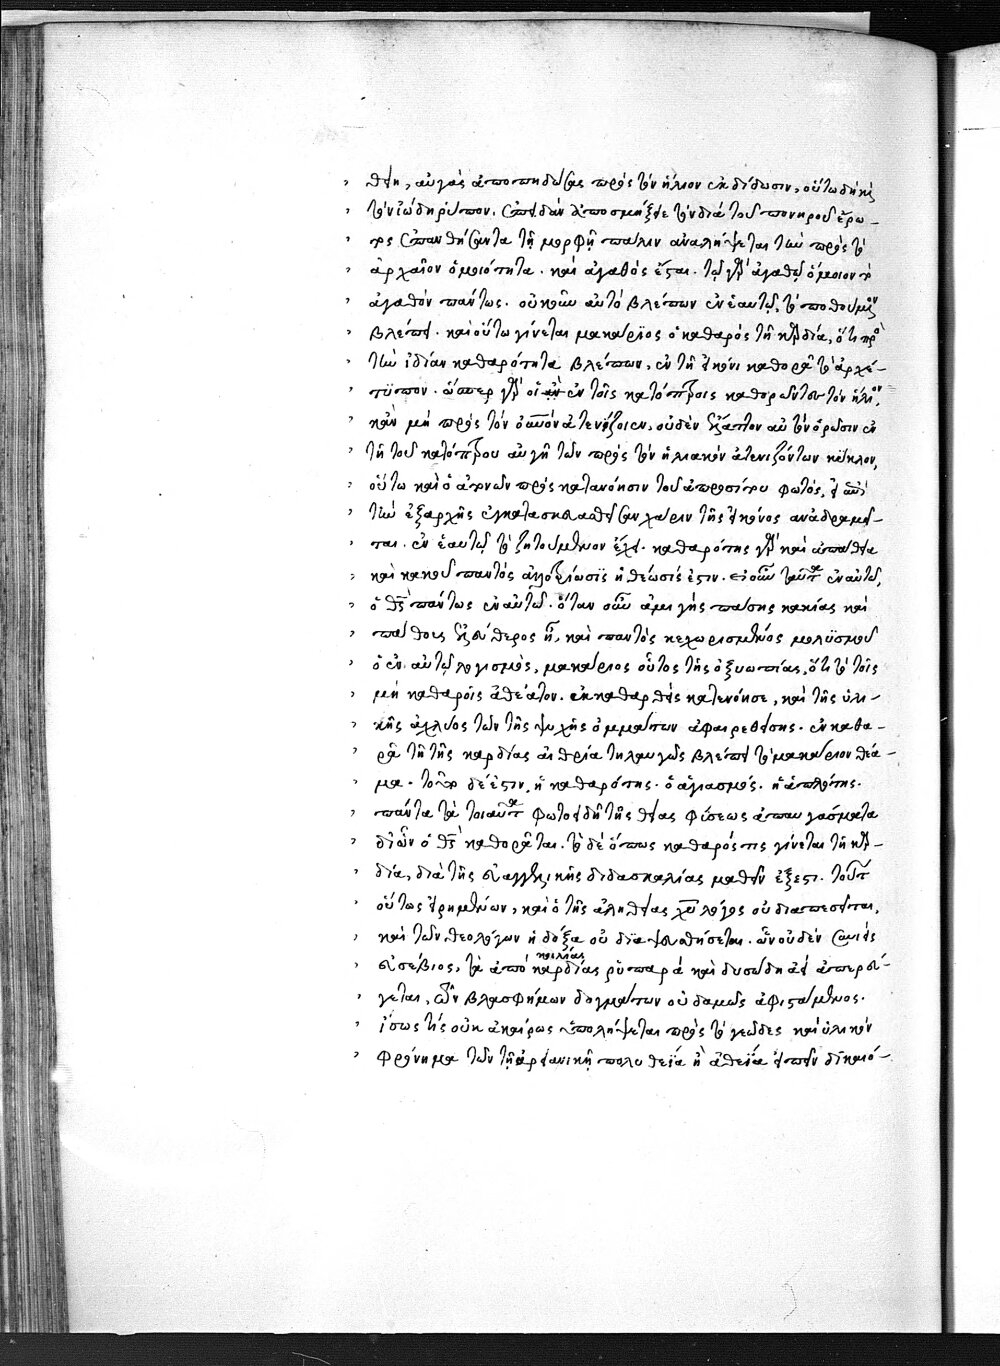 θείη, αὐγὰς ἀποπηδώσας πρὸς τὸν ἥλιον ἐκδίδωσιν, οὕτω δὴ καὶ
τὸν ἰώδη ῥύπον. ἐπειδὰν ἀποσμήξηται τὸν διὰ τοῦ πονηροῦ εὐρῶ-
τος ἐπανθήσαντα τῇ μορφῇ πάλιν ἀναλήψεται τὴν πρὸς τὸ
ἀρχαῖον ὁμοιότητα. καὶ ἀγαθὸς ἔσται. τῷ γὰρ ἀγαθῷ ὅμοιον τὸ
ἀγαθὸν πάντως. οὐκοῦν αὐτὸ βλέπων ἐν ἑαυτῷ, τὸ ποθούμενον
βλέπει. καὶ οὕτω γίνεται μακάριος ὁ καθαρὸς τῇ καρδίᾳ, ὅτι πρὸς
τὴν ἰδίαν καθαρότητα βλέπων, ἐν τῇ εἰκόνι καθορᾷ τὸ ἀρχέ-
τυπον. ὥσπερ γὰρ οἱ ἐν τοῖς κατόπτροις καθορῶντες τὸν ἥλιον,
κἂν μὴ πρὸς τὸν οὐρανὸν ἀτενίζοιεν, οὐδὲν ἔλαττον αὐτὸν ὁρῶσιν ἐν
τῇ τοῦ κατόπτρου αὐγῇ τῶν πρὸς τὸν ἡλιακὸν ἀτενιζόντων κύκλον,
οὕτω καὶ ὁ ἀτονῶν πρὸς κατανόησιν τοῦ ἀπροσίτου φωτός, εἰ ἐπὶ
τὴν ἐξαρχῆς ἐγκατασκευασθεῖσαν χάριν τῆς εἰκόνος ἀναδραμεῖ-
ται. ἐν ἑαυτῷ τὸ ζητούμενον ἔχει. καθαρότης γὰρ καὶ ἀπάθεια
καὶ κακοῦ παντὸς ἀλλοτρίωσις ἡ θέωσίς ἐστιν. εἰ οὖν ταῦτα ἐν αὐτῷ,
ὁ θς πάντως ἐν αὐτῷ. ὅταν οὖν ἀμιγὴς πάσης κακίας καὶ
πάθους ἐλεύθερος ᾖ, καὶ παντὸς κεχωρισμένος μολυσμοῦ
ὁ ἐν αὐτῷ λογισμός, μακάριος οὗτος τῆς ὀξυωπίας, ὅτι τὸ τοῖς
μὴ καθαροῖς ἀθέατον. ἐκκαθαρθεὶς κατενόησε, καὶ τῆς ὑλι-
κῆς ἀχλύος τῶν τῆς ψυχῆς ὀμμάτων ἀφαιρεθείσης. ἐν καθα-
ρᾷ τῇ τῆς καρδίας αἰθρίᾳ τηλαυγῶς βλέπει τὸ μακάριον θέα-
μα. τοῦτο δέ ἐστιν, ἡ καθαρότης. ὁ ἁγιασμός. ἡ ἁπλότης.
πάντα τὰ τοιαῦτα φωτοειδῆ τῆς θείας φύσεως ἀπαυγάσματα
δι' ὧν ὁ θς καθορᾶται. τὸ δὲ ὅπως καθαρός τις γίνεται τῇ καρ-
δίᾳ, διὰ τῆς εὐαγγελικῆς διδασκαλίας μαθεῖν ἔξεστι. τούτων
οὕτως εἰρημένων, καὶ ὁ τῆς ἀληθείας χυ λόγος οὐ διαπεσεῖται,
καὶ τῶν θεολόγων ἡ δόξα οὐ διαψευσθήσεται. ὧν οὐδὲν συνιεὶς
εὐσέβιος, τὰ ἀπὸ καρδίας ῥυπαρὰ καὶ δυσώδη ἀεὶ ἀπερεύ-
κοιλίας
γεται, τῶν βλασφήμων δογμάτων οὐδαμῶς ἀφιστάμενος.
ἴσως τίς οὐκ ἀκαίρως ὑπολήψεται πρὸς τὸ γεῶδες καὶ ὑλικὸν
φρόνημα τῶν τῇ ἀρειανικῇ πολυθεΐᾳ ἢ ἀθεΐᾳ εἰπεῖν δικαιό-